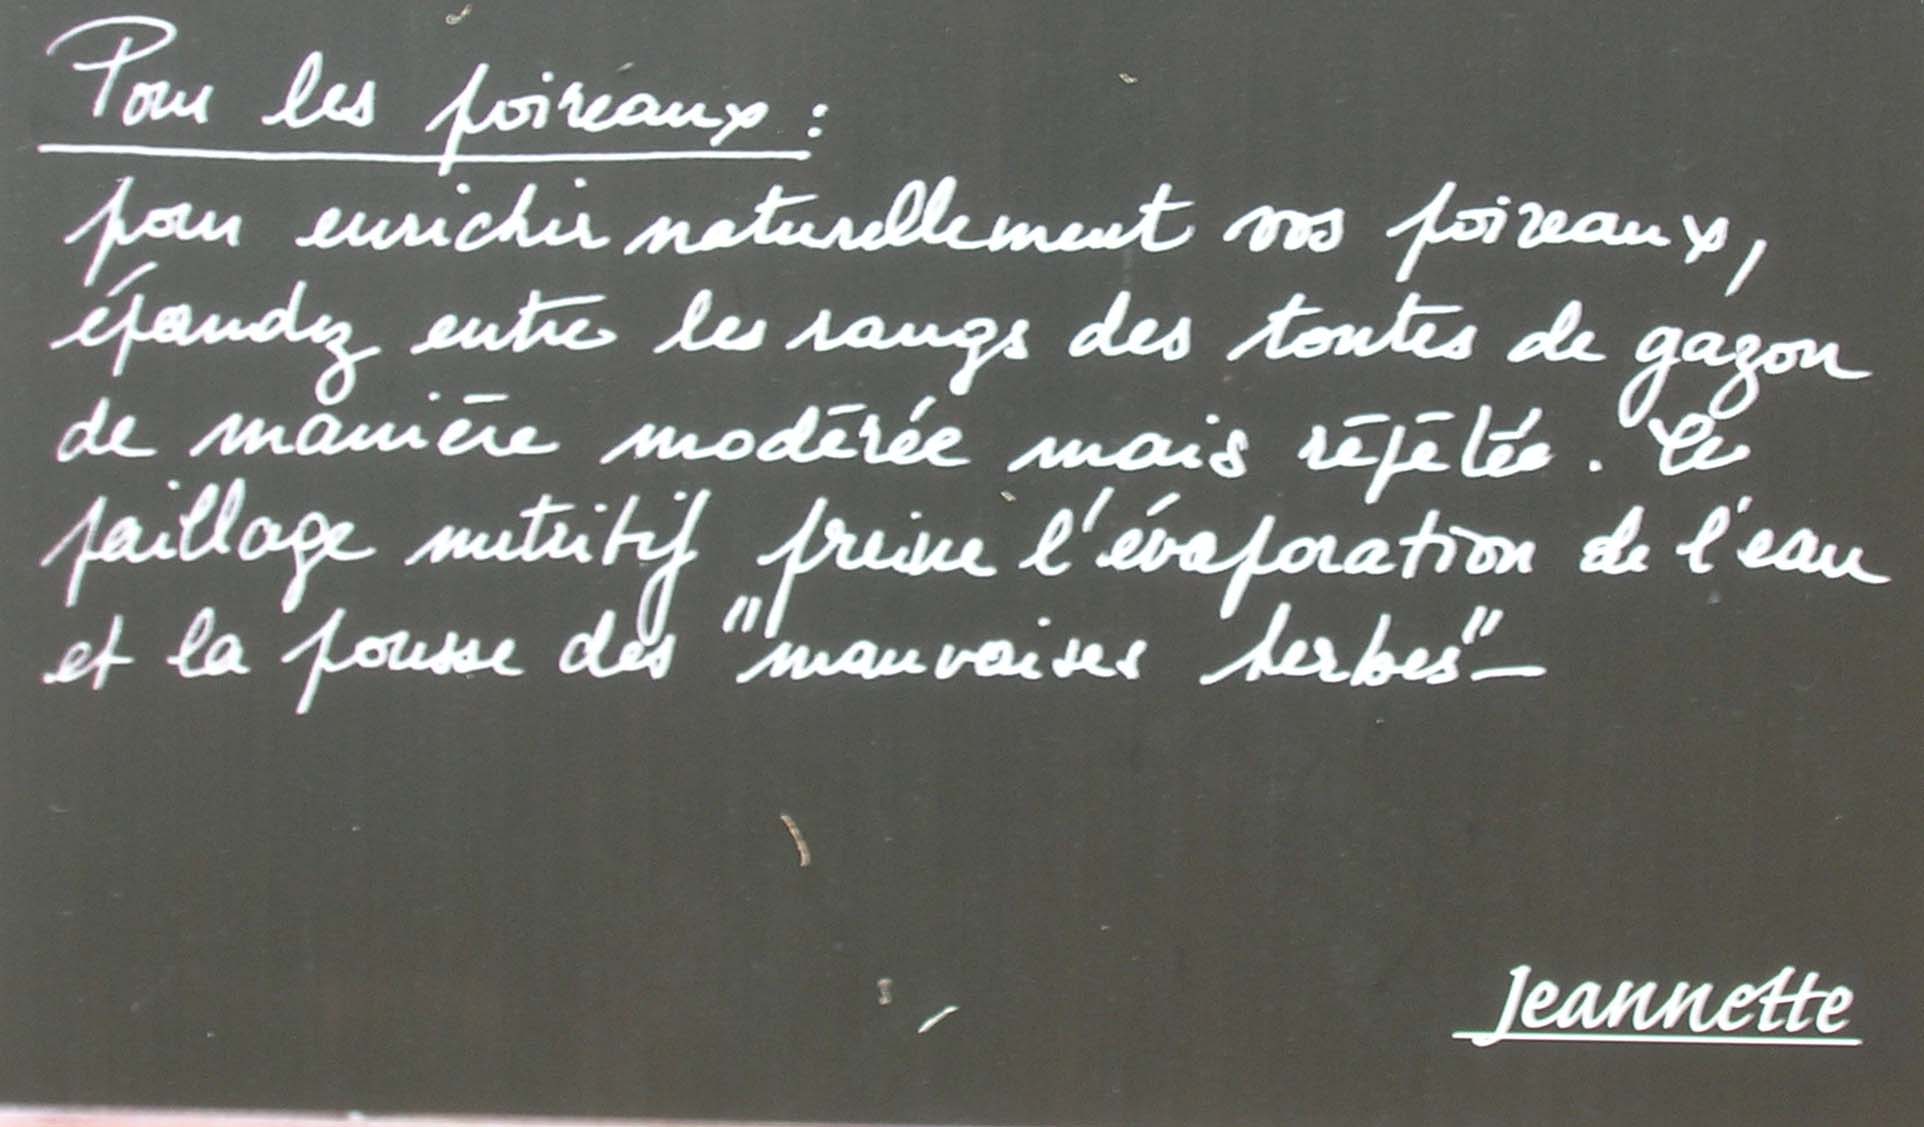 Pour les poireaux :
pour enrichir naturellement vos poireaux,
épandez entre les rangs des tontes de gazon
de manière modérée mais répétée. Ce
paillage nutritif freine l'évaporation de l'eau
et la pousse des "mauvaises herbes"-
Jeannette